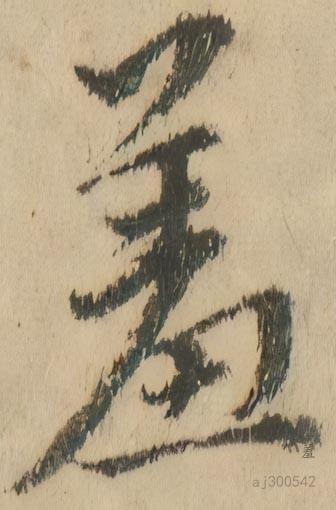 羞
羞
aj300542